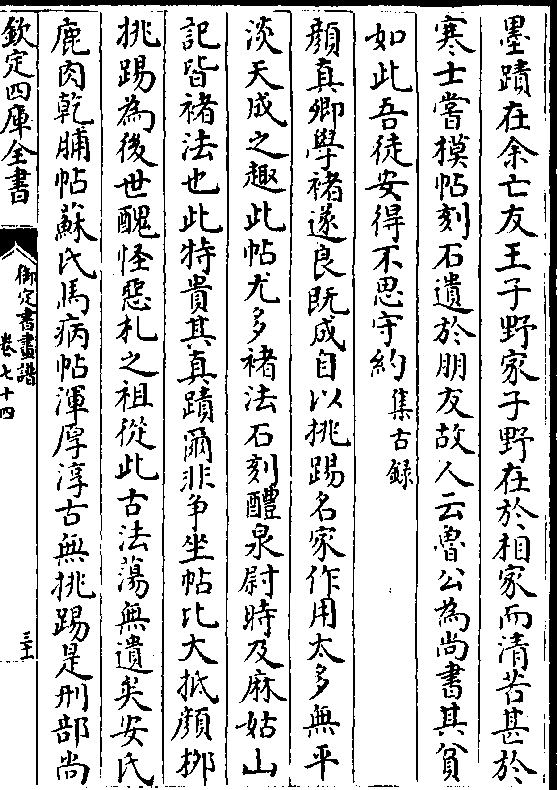 墨蹟在余亡友王子野家子野在於相家而清苦甚於
寒士嘗模帖刻石遺於朋友故人云魯公為尚書其貧
如此吾徒安得不思守約集古錄
顔真卿學褚遂良既成自以挑踢名家作用太多無平
淡天成之趣此帖尤多褚法石刻醴泉尉時及麻姑山
記皆褚法也此特貴其真蹟爾非争坐帖比大抵顔栁
挑踢為後世醜怪惡札之祖從此古法蕩無遺矣安氏
鹿肉乾脯帖蘇氏馬病帖渾厚淳古無挑踢是刑部尚
欽定四庫全書
御定書畫譜
卷七十四